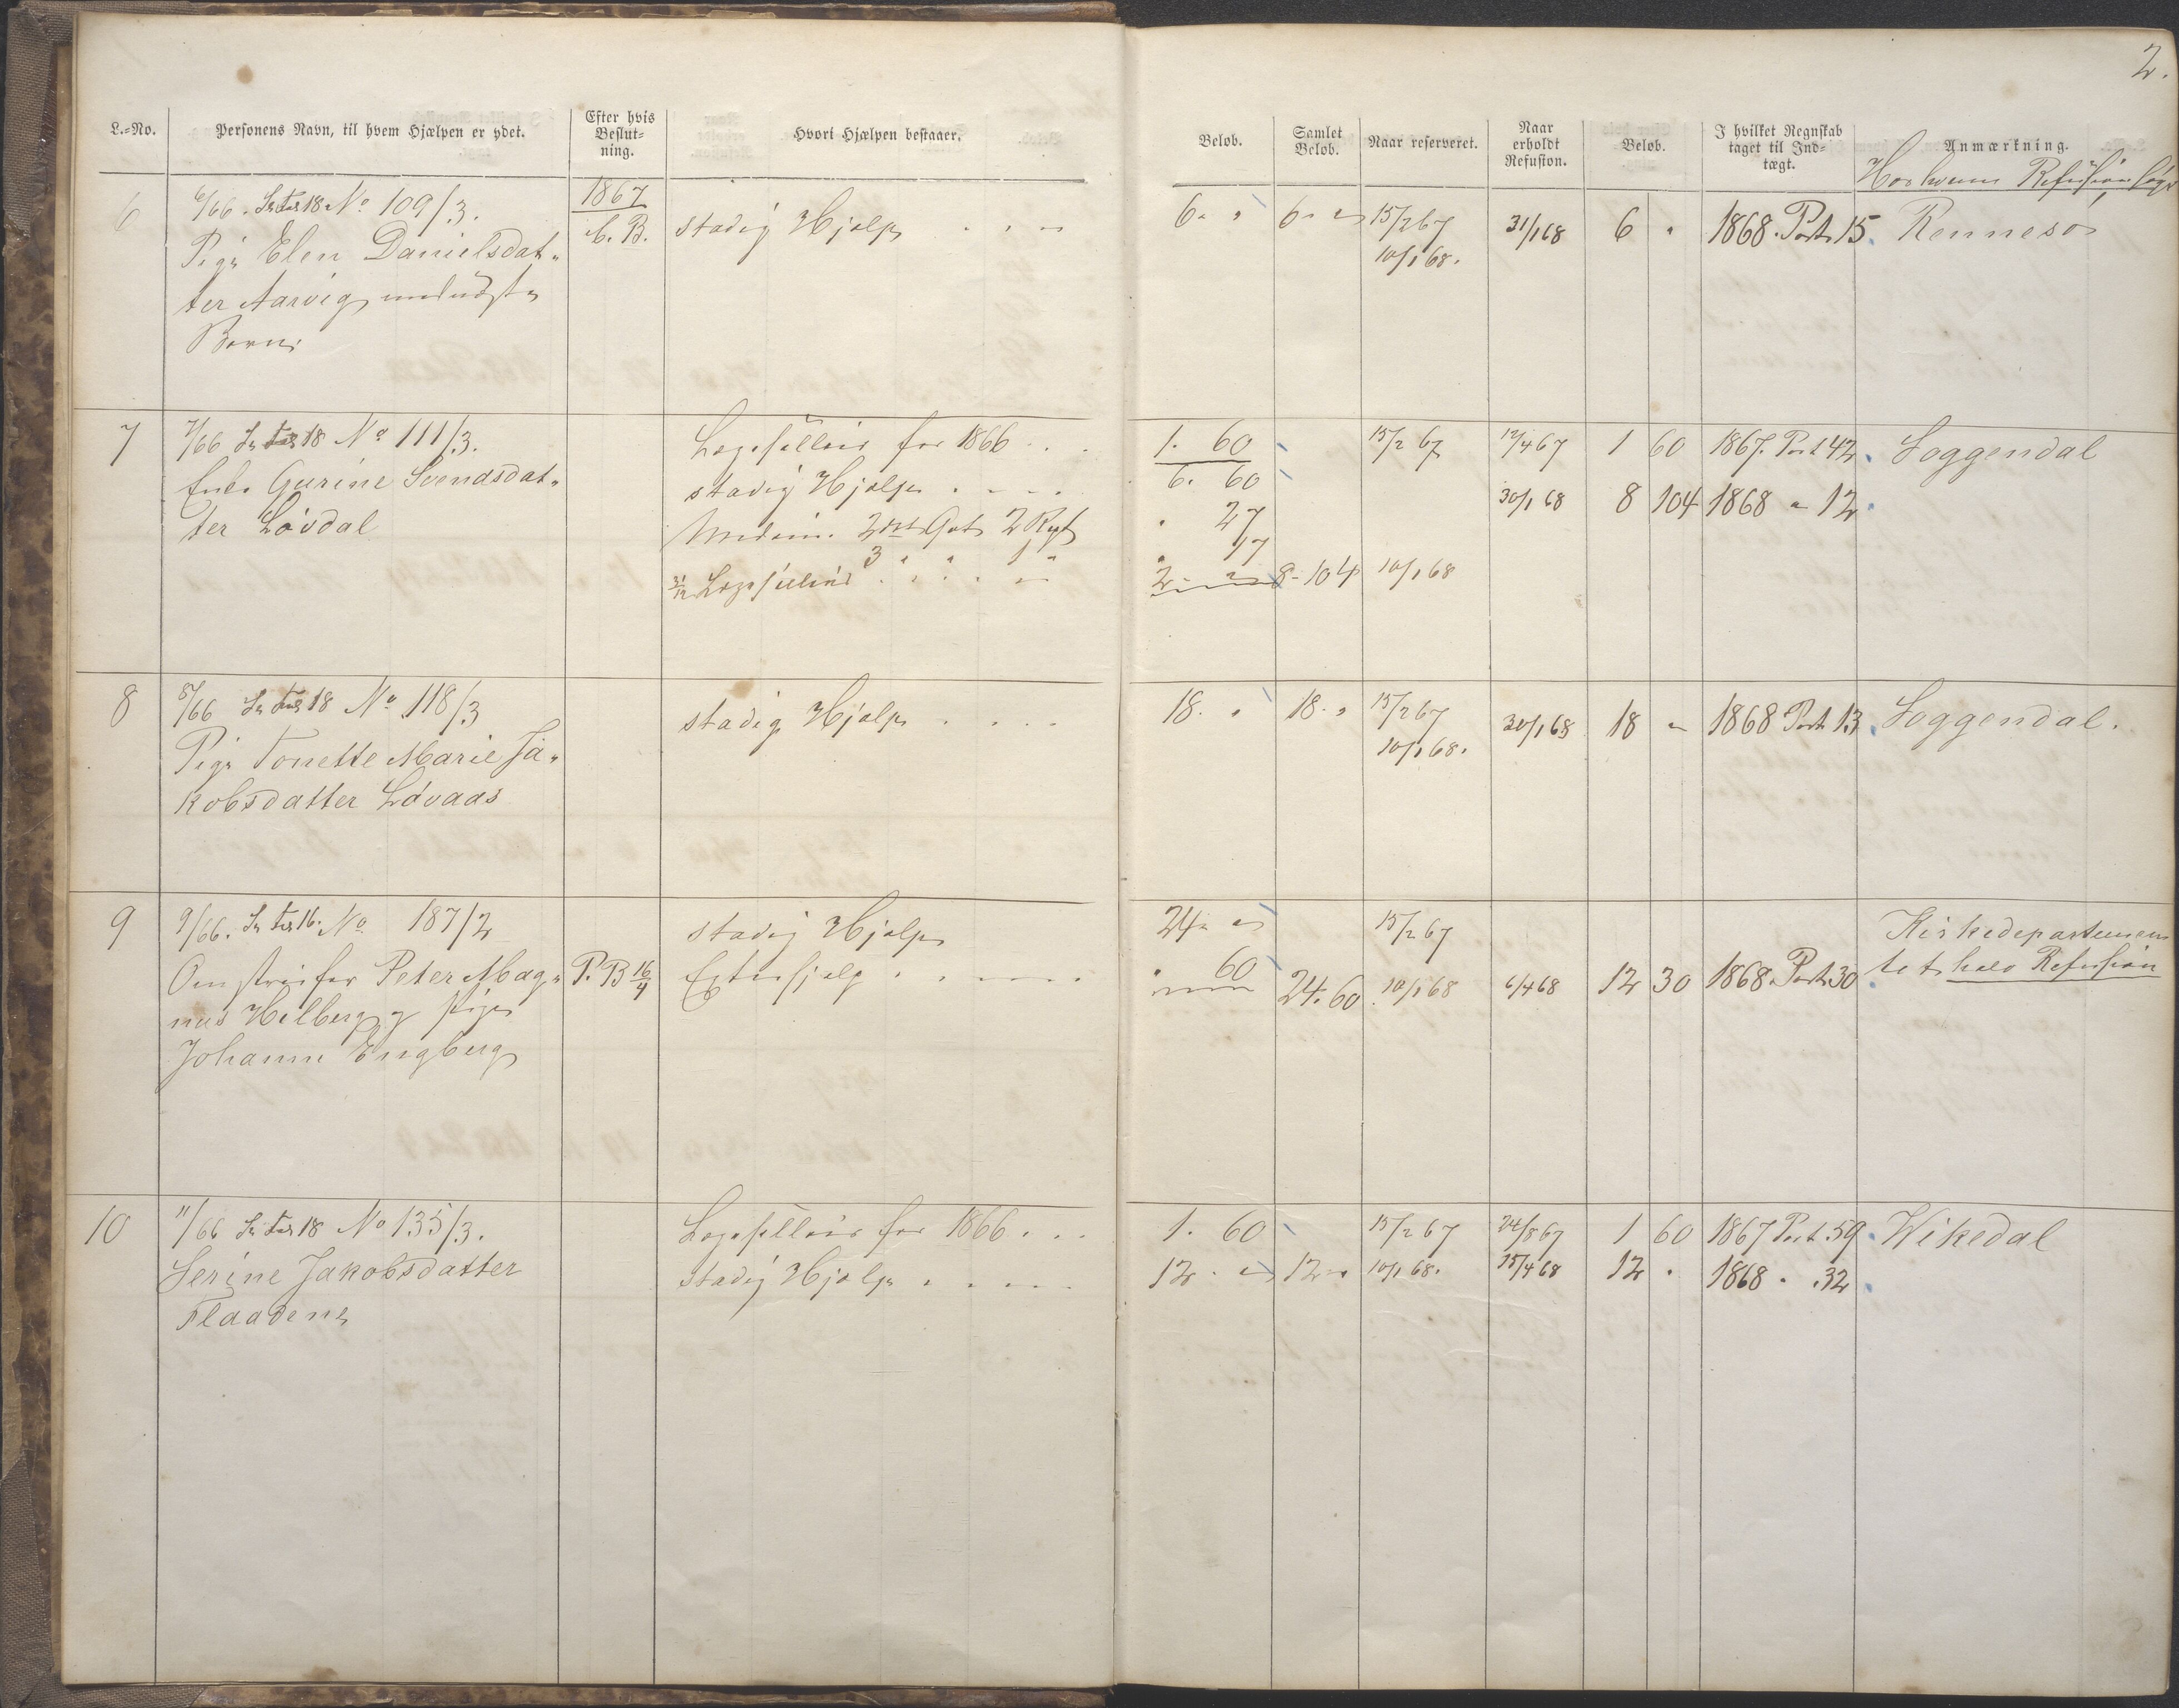 2.
L.-No. Personens Navn, til hvem Hjælpen er ydet. Efter hvis Beslutning. Hvori Hjælpen bestaaer. Beløb. Samlet Beløb. Naar reserveret. Naar erholdt Refusion. Beløb. I hvilket Regnskab taget til Indtægt. Anmærkning.
Refusion søges
6 6/66. 18 No 109/3. 1867 stadig Hjælp 6 " 6 " 15/2 67 31/1 68 6 " 1868. Post 15. Rennesø
Pige Elen Danielsdat- C. B. 10/1 68.
ter Aarvig
Børn
7 7/66 18 No 111/3. for 1866 1. 60 15/2 67 12/4 67 1 60 1867. Post 42. Soggendal
Enke Gurine Svendsdat- stadig Hjælp 6. 60 30/1 68 8 104 1868 " 12
ter Løvdal 2 27
3 " " 1 " " 17
2 " 8-104 10/1 68
8 8/66 18 No 118/3 stadig Hjælp 18. " 18. " 15/2 67 30/1 68 18 " 1868 Post 13. Soggendal.
Pige Tonette Marie Ja- 10/1 68.
kobsdatter Løvaas
9 9/66. 16. No 187/2 stadig Hjælp 24 " 15/2 67 Kirkedepartemen
Omstreifer Peter Mag- P. B 16/4 Extrahjælp " 60 24. 60. 10/1 68 6/4 68 12 30 1868. Post 30. tet halv Refusion
nus Helberg og Pige
Johanne Engberg
10 11/66 18 No 135/3. for 1866 1. 60 15/2 67 24/8 67 1 60 1867 Post 59. Wikedal
Serine Jakobsdatter stadig Hjælp 12. " 12 " 10/1 68. 15/4 68 12 " 1868 " 32
Flaadene